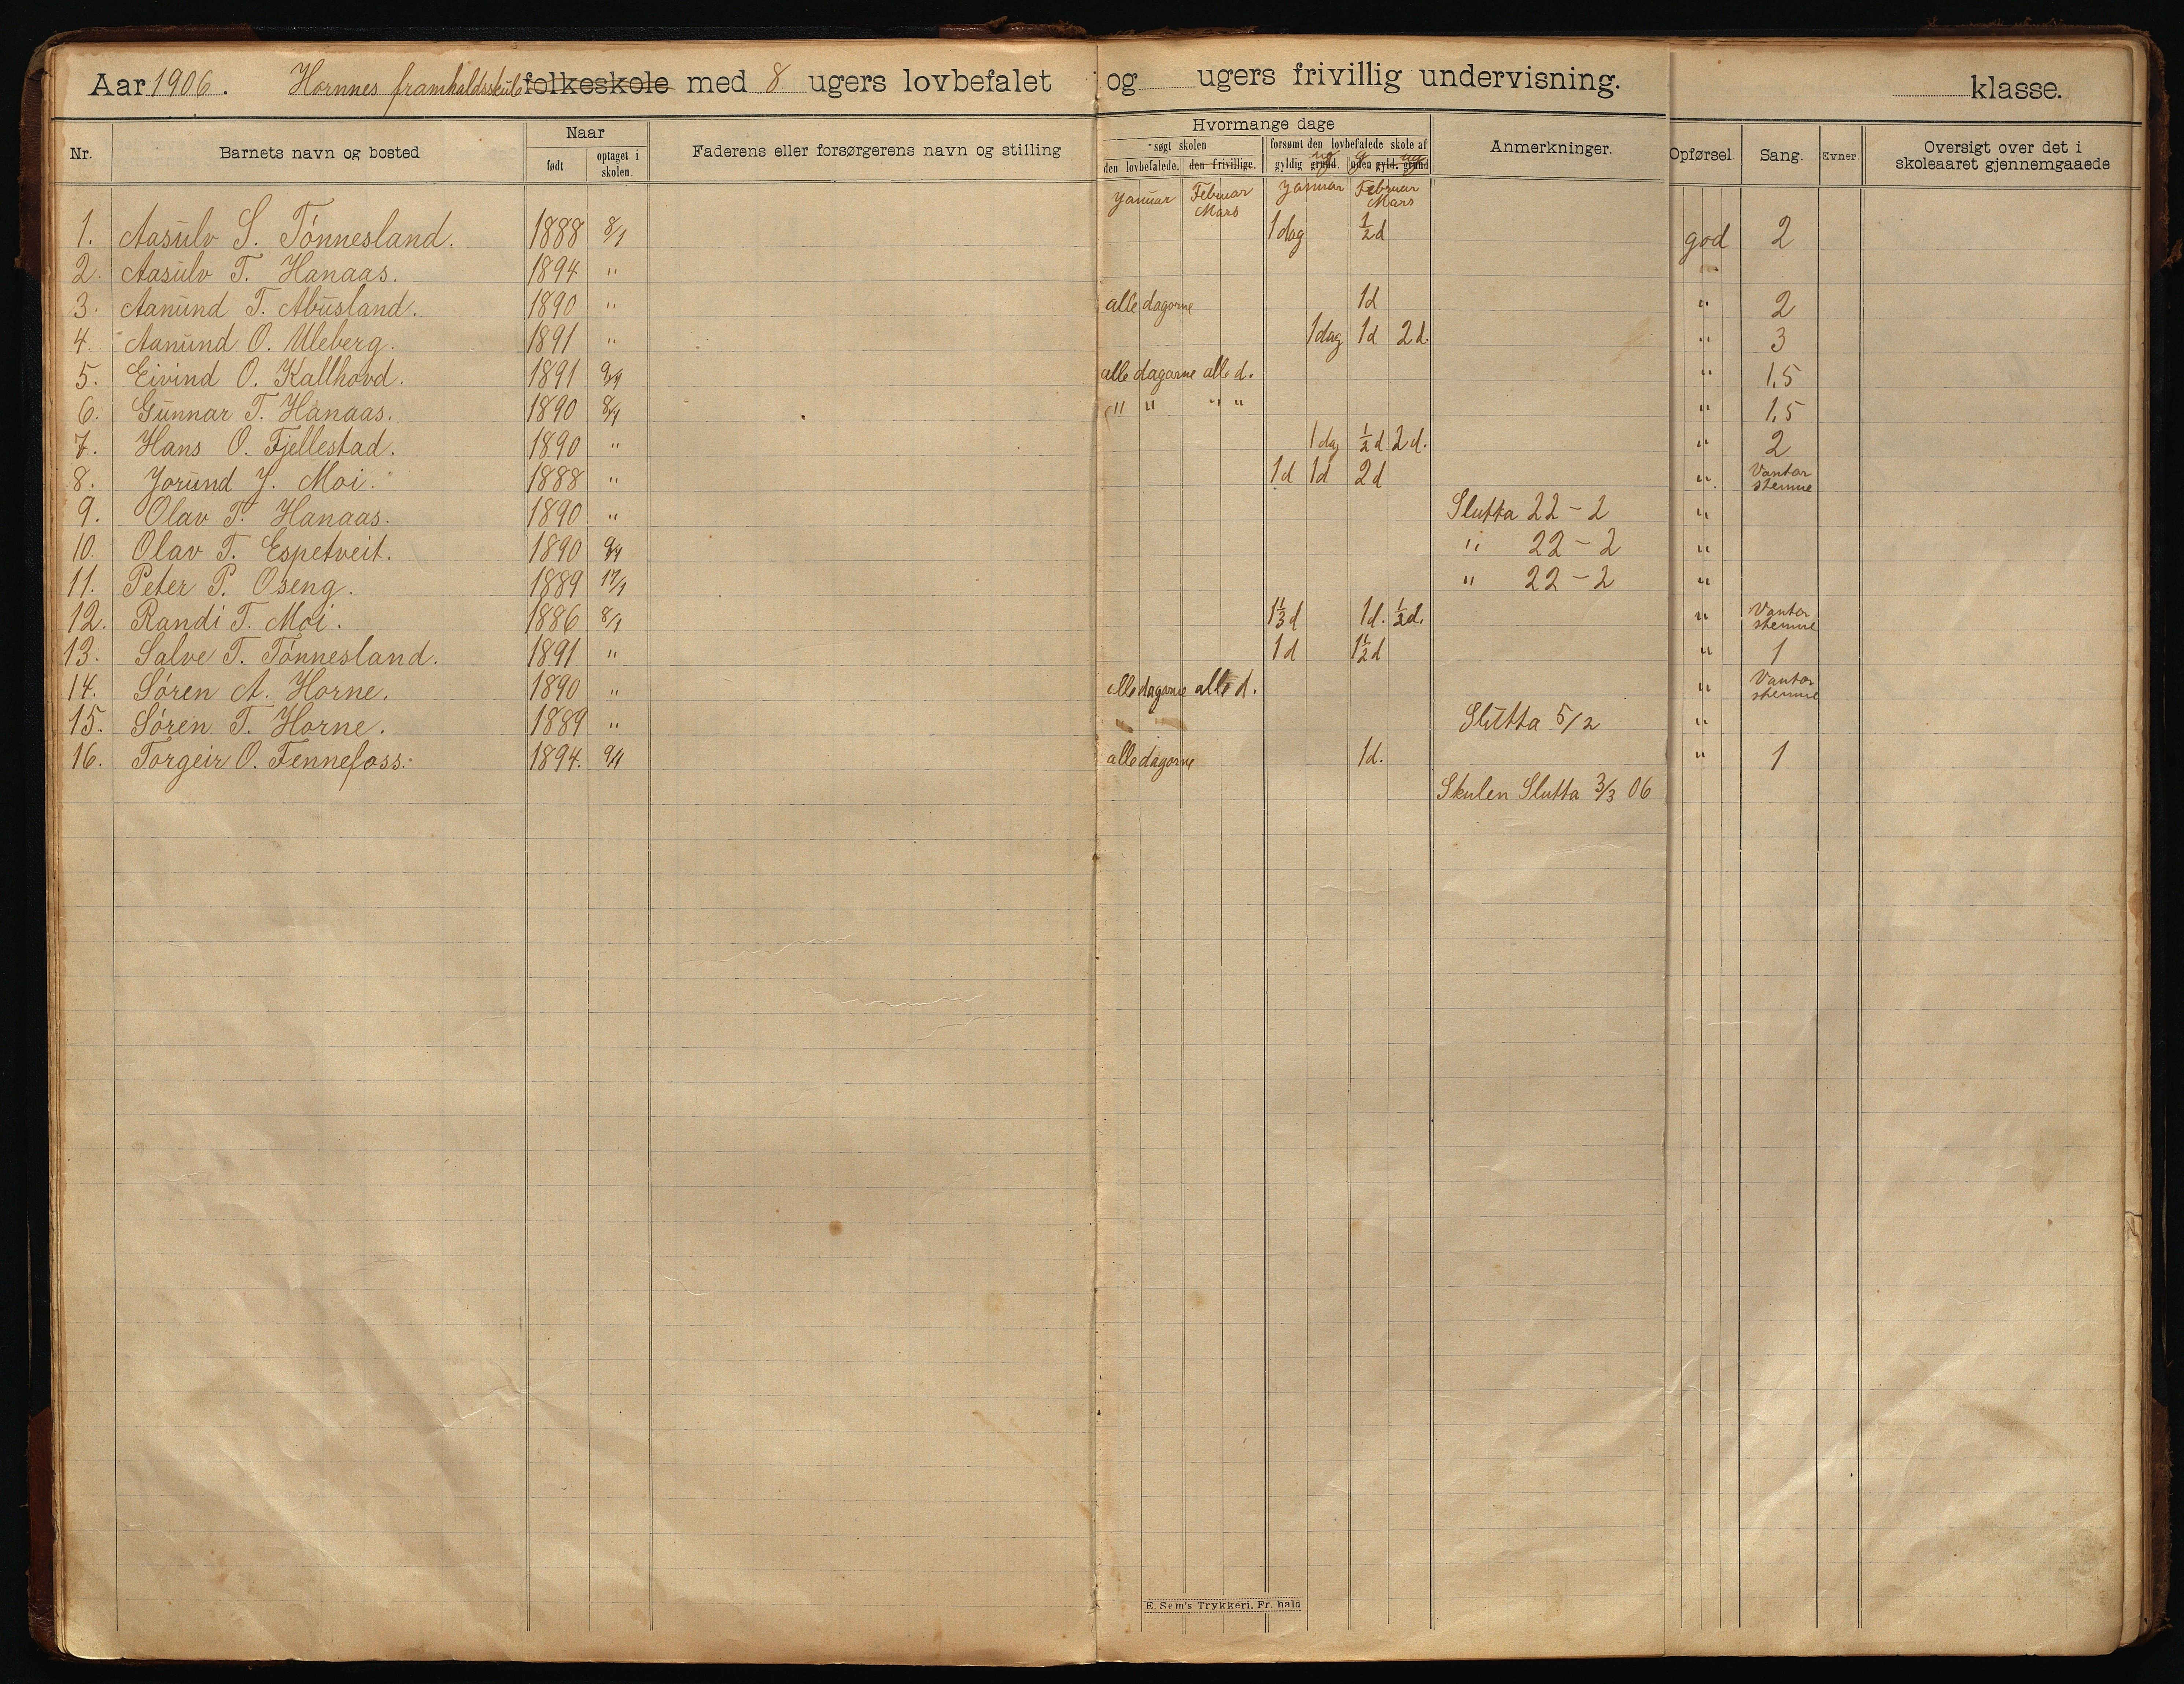 Aar 1906. Hornnes framhaldsskule folkeskole med 8 ugers lovbefalet og ugers frivillig undervisning. klasse.
Nr. Barnets navn og bosted Naar født optaget i skolen. Faderens eller forsørgerens navn og stilling Hvormange dage søgt skolen den lovbefalede. den frivillige. forsømt den lovbefalede skole af gyldig grund. ug uden gyld. grund g ug Anmerkninger. Opførsel. Sang. Evner. Oversigt over det i skoleaaret gjennemgaaede
Januar Februar Mars Januar Februar Mars
1. Aasulv S. Tønnesland. 1888 8/1 1 dag ½ d god 2
2. Aasulv T. Hanaas. 1894 "
3. Aanund T. Abusland. 1890 " alle dagarne 1 d " 2
4. Aanund O. Uleberg. 1891 " 1 dag 1 d 2 d. " 3
5. Eivind O. Kallhovd. 1891 9/1 alle dagarne alle d. " 1,5
6. Gunnar T. Hanaas. 1890 8/1 " " " " " 1,5
7. Hans O. Fjellestad. 1890 " 1 dag ½ d 2 d. " 2
8. Jorund J. Moi. 1888 " 1 d 1 d 2 d " Vantar stemme
9. Olav T. Hanaas. 1890 " Slutta 22-2 "
10. Olav T. Espetveit. 1890 9/1 " 22-2 "
11. Peter P. Oseng. 1889 17/1 " 22-2 "
12. Randi T. Moi. 1886 8/1 1⅓ d 1 d. ½ d. " Vantar stemme
13. Salve T. Tønnesland. 1891 " 1 d 1½ d " 1
14. Søren A. Horne. 1890 " alle dagarne alle d. " Vantar stemme
15. Søren T. Horne. 1889 " Slutta 5/2 "
16. Torgeir O. Fennefoss. 1894. 9/1 alle dagarne 1 d. " 1
Skulen Slutta 3/3 06
E. Sem's Trykkeri. Fr. hald